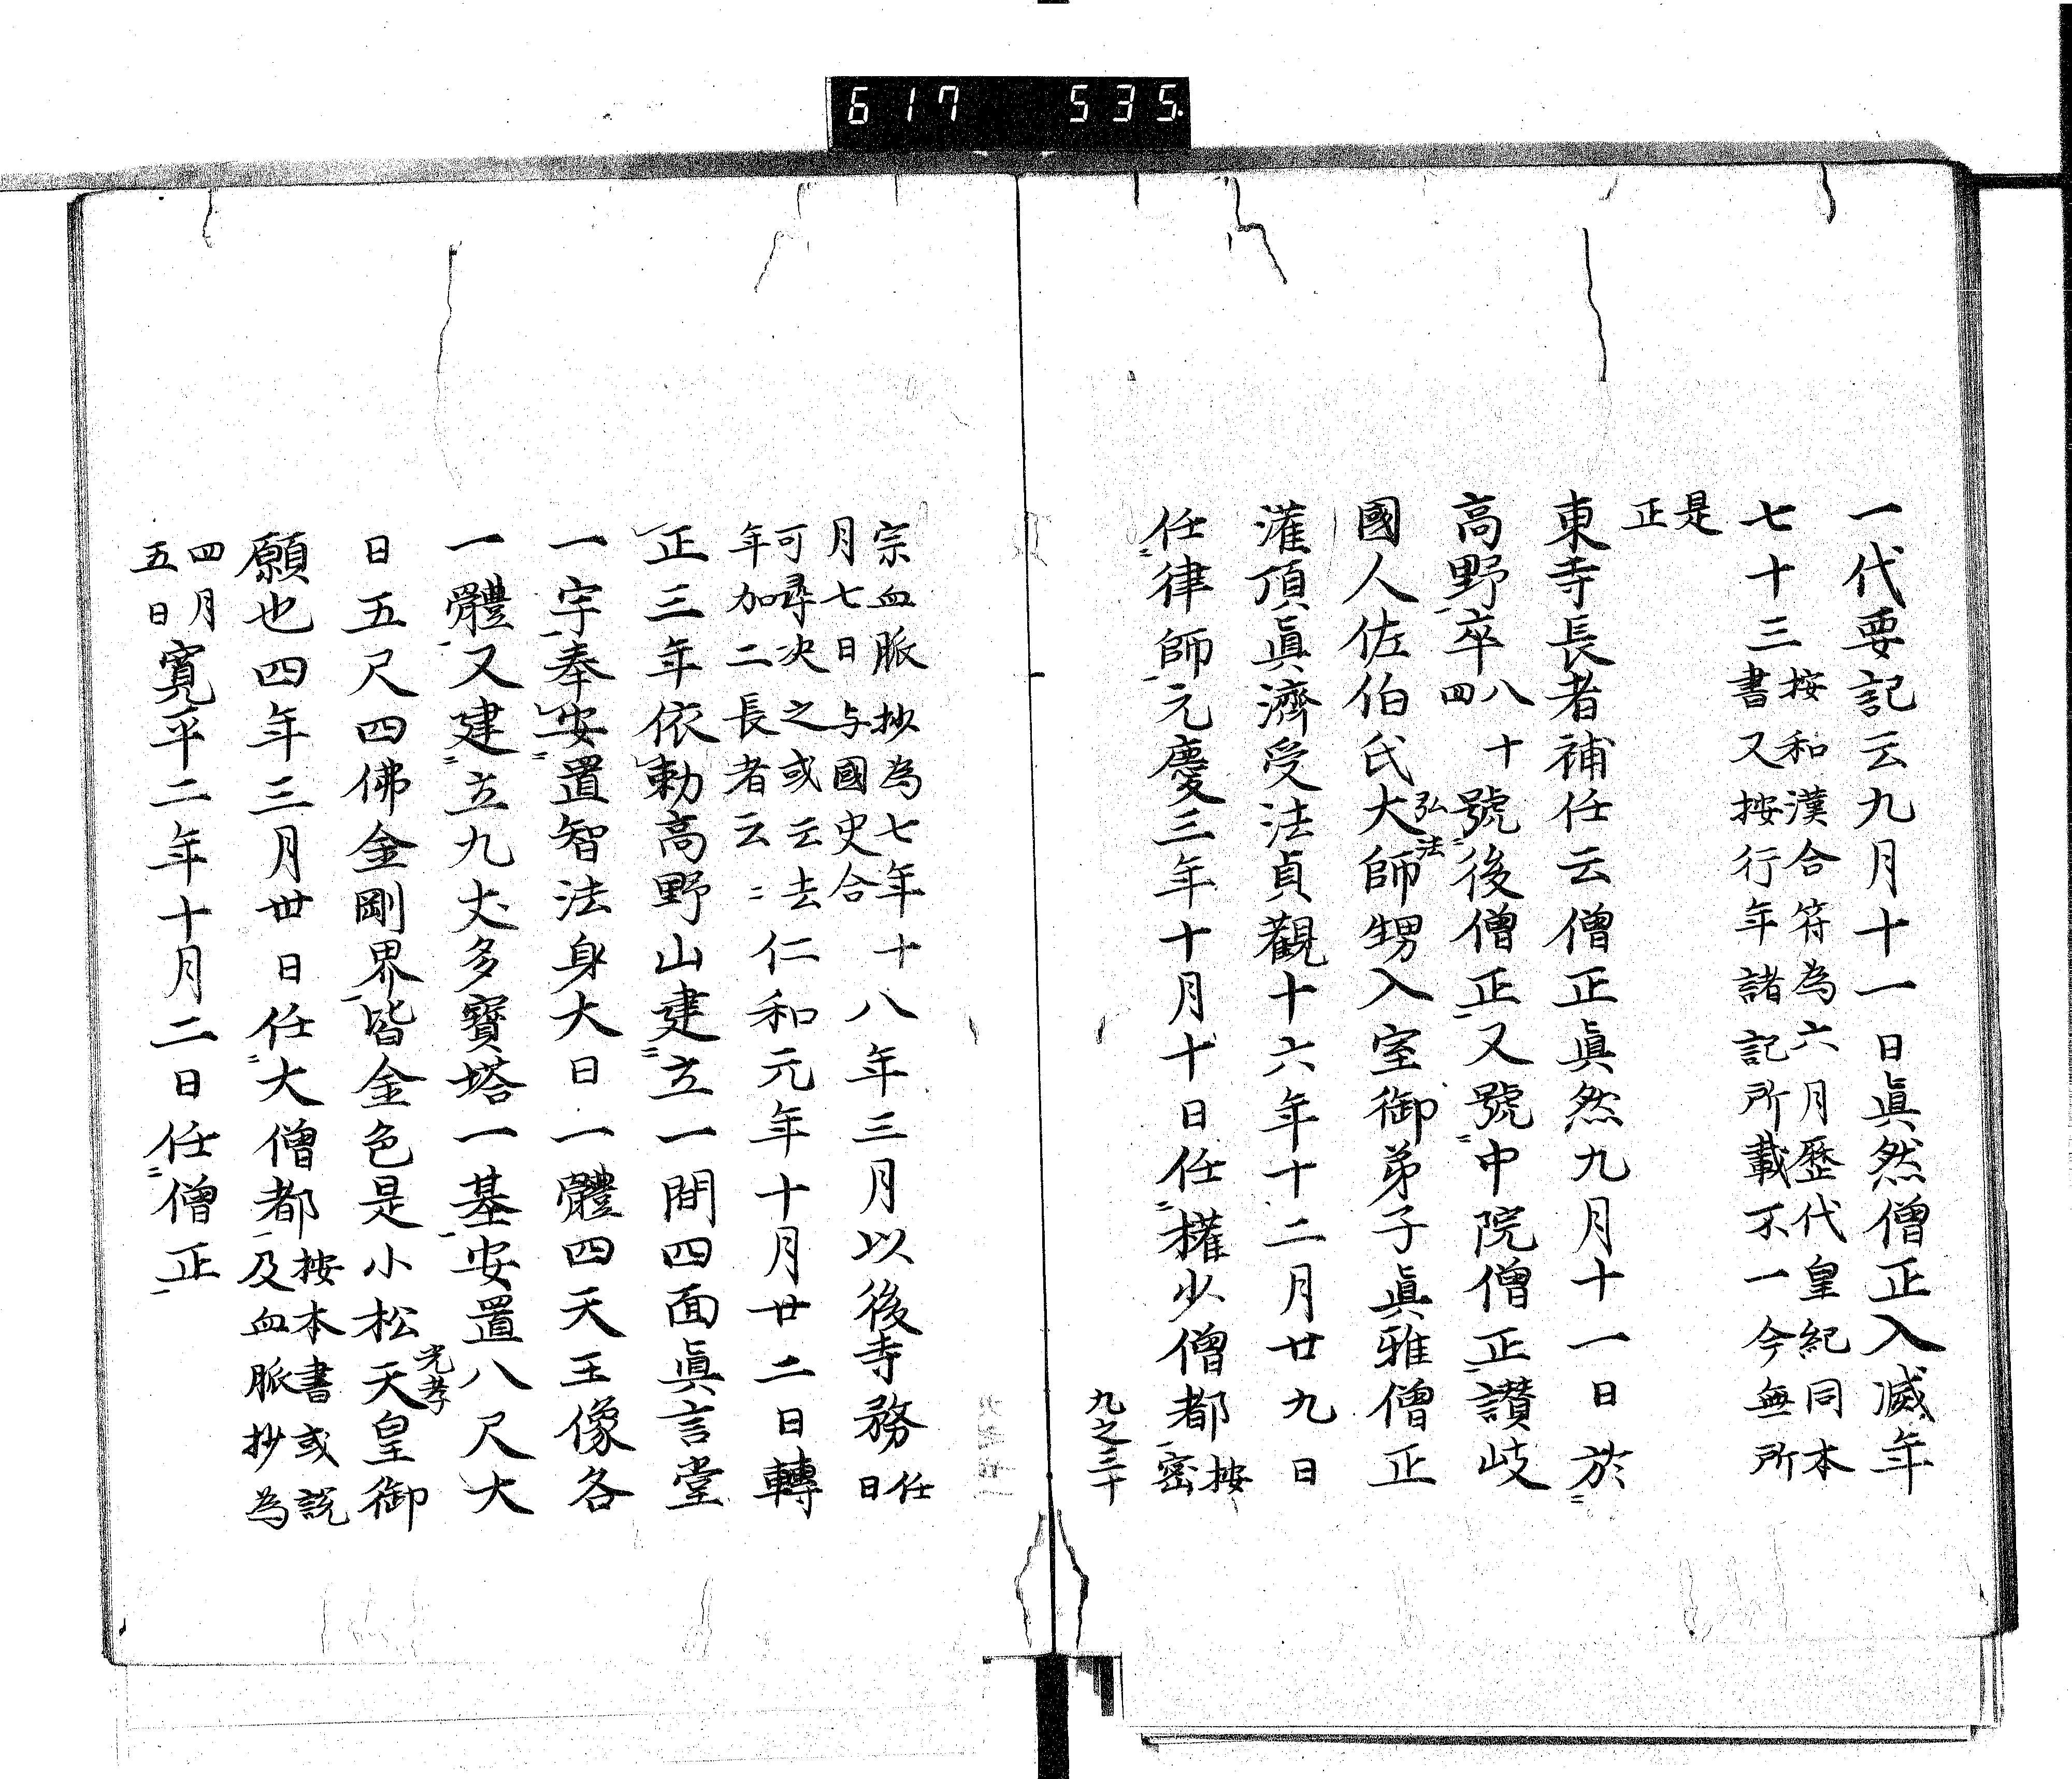 617 535.
一代要記云九月十一日眞然僧正入滅年
七十三按和漢合符為六月歷代皇紀同本
書又按行年諸記所載不一今無所
是
正
東寺長者補任云僧正眞然九月十一日於
高野卒八十
四號後僧正又號中院僧正讃岐
國人佐伯氏大師甥入室御弟子眞雅僧正
弘法
灌頂眞濟受法貞觀十六年十二月廿九日
任律師元慶三年十月十日任權少僧都按
密
九之三十
宗血脈抄為七年
月七日与國史合十八年三月以後寺務任
日
可尋决之或云去
年加二長者云〻仁和元年十月廿二日轉
正三年依勅高野山建立一間四面眞言堂
一宇奉安置智法身大日一體四天王像各
一體又建立九丈多寶塔一基安置八尺大
日五尺四佛金剛界皆金色是小松天皇御
光孝
願也四年三月丗日任大僧都按本書或説
及血脈抄為
四月
五日寛平二年十月二日任僧正